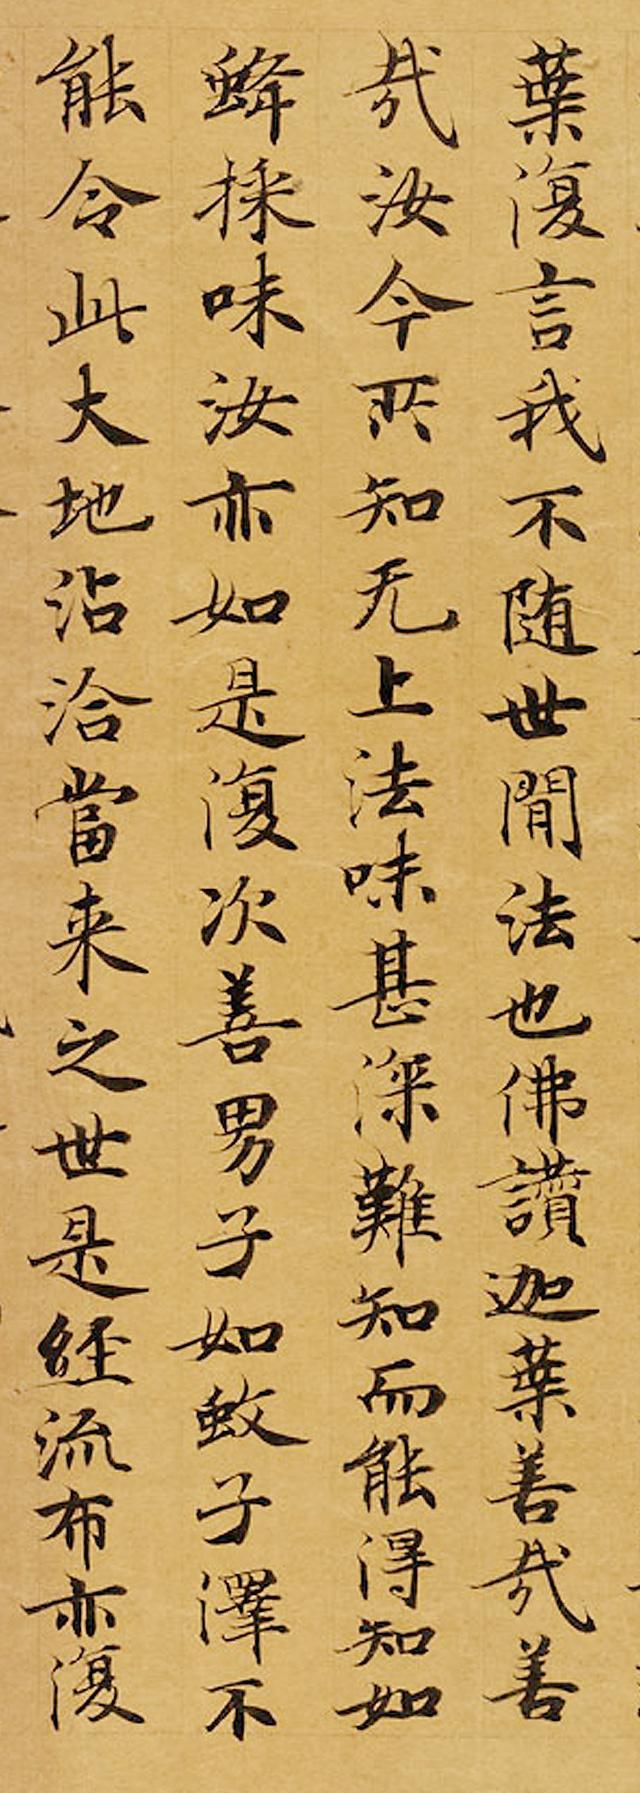 葉復言我不随世間法也佛讚迦葉善哉善
哉汝今所知无上法味甚深難知而能得知如
蜂採味汝亦如是復次善男子如蚊子澤不
能令此大地沾洽當来之世是經流布亦復